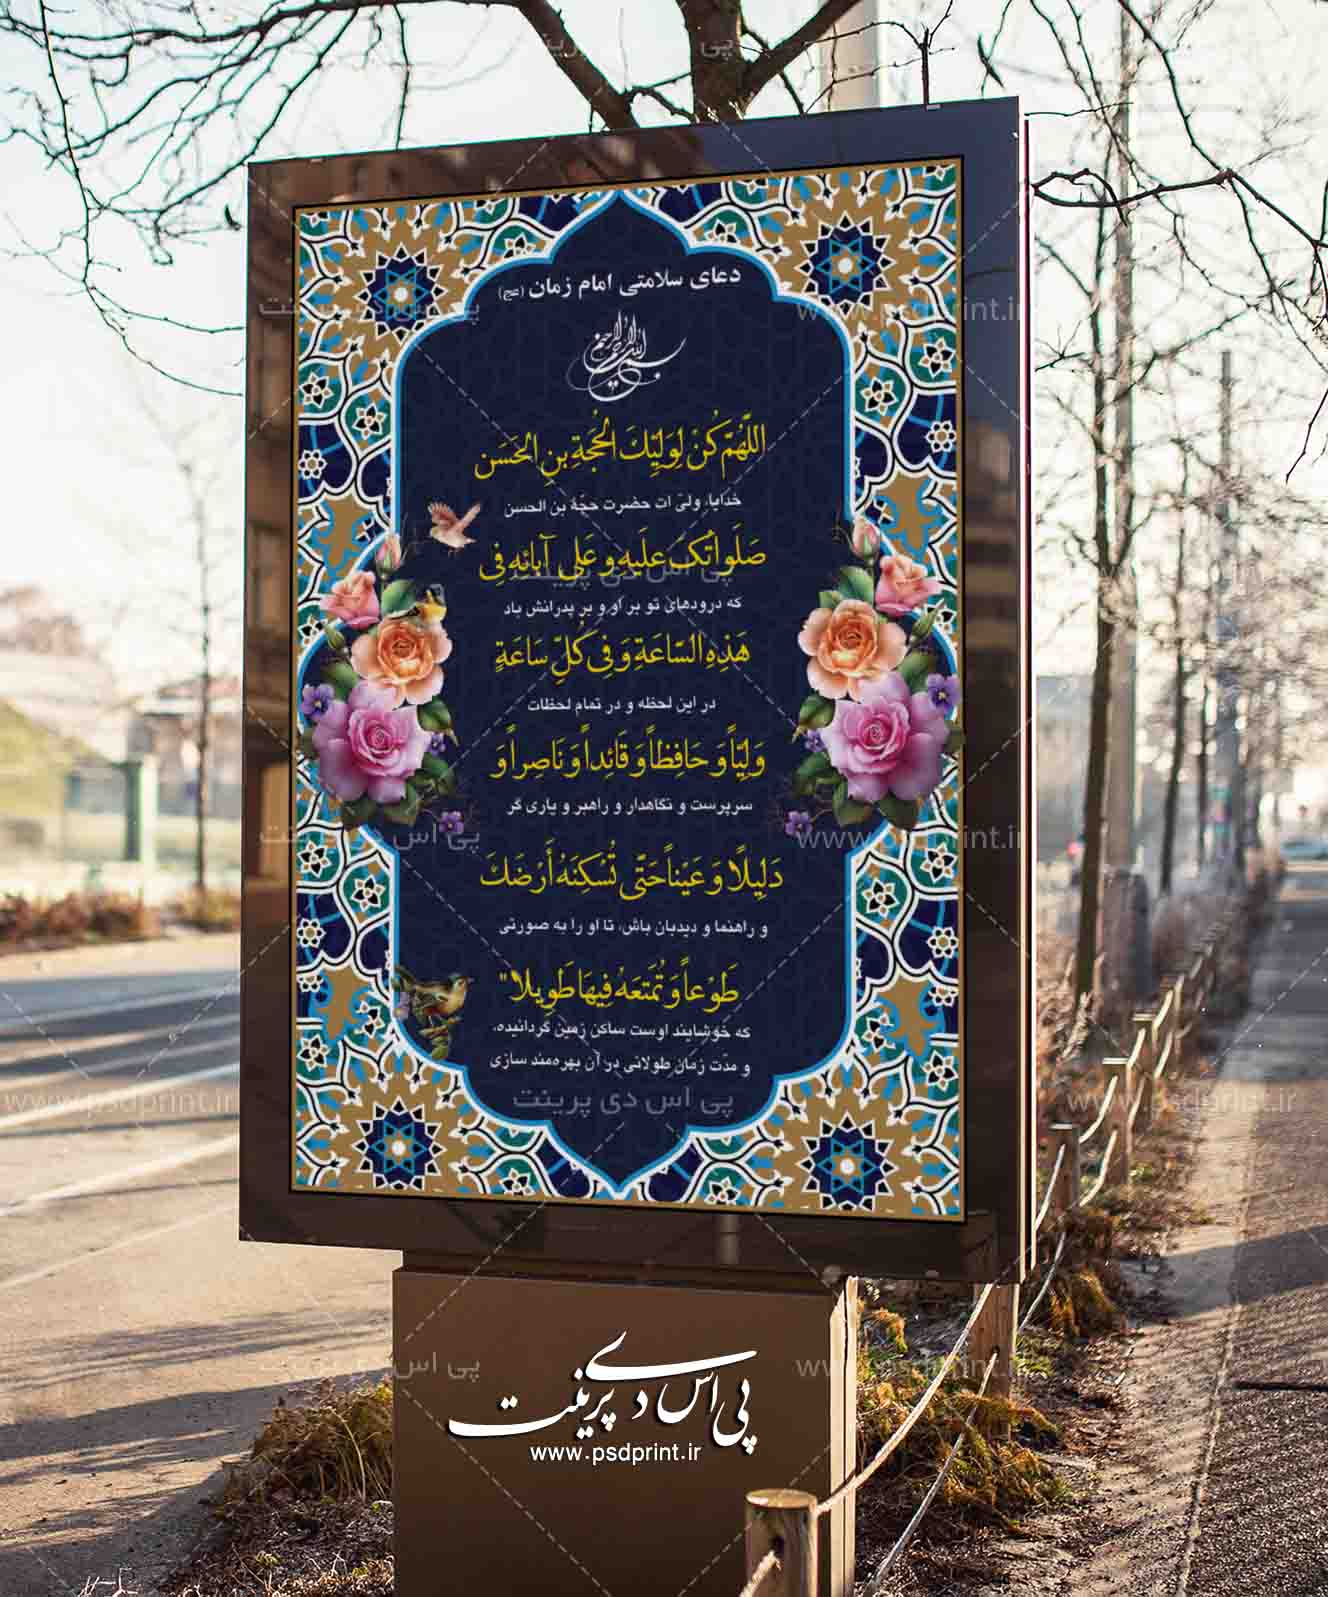 دعای سلامتی امام زمان (عج)
بسم الله الرحمن الرحیم
اللّهُمَّ كُنْ لِوَلِيِّكَ الحُجَةِ بنِ الحَسَن
خدایا، ولیّ ات حضرت حجّة بن الحسن
صَلَواتُكَ علَيهِ و عَلى آبائِهِ فِي
که درودهای تو بر او و بر پدرانش باد
هَذِهِ السّاعَةِ وَفِي كُلِّ سَاعَةٍ
در این لحظه و در تمام لحظات
وَلِيّاً وَ حَافِظاً وَ قَائِداً وَ نَاصِراً وَ
سرپرست و نگاهدار و راهبر و یاری گر
دَلِيلًا وَ عَيْناً حَتَّى تُسْكِنَهُ أَرْضَكَ
و راهنما و دیدبان باش، تا او را به صورتی
طَوْعاً وَ تُمَتِّعَهُ فِيهَا طَوِيلا"
که خوشایند اوست ساکن زمین گردانیده،
و مدّت زمان طولانی در آن بهره‌مند سازی
پی اس دی پرینت
www.psdprint.ir